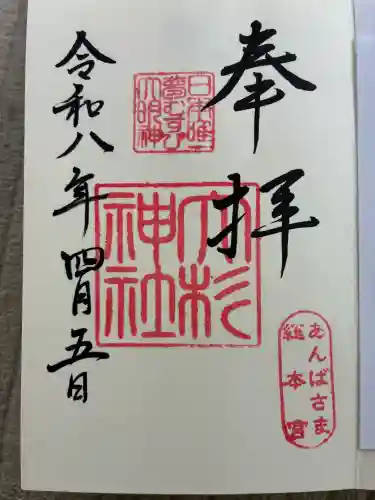 奉拝
日本唯一
夢むすび
大明神
大杉
神社
あんばさま
総本宮
令和八年四月五日